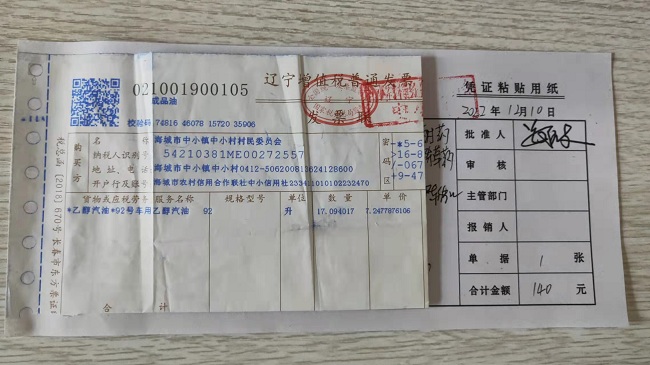 021001900105
辽宁增值税普通发票
成品油
校验码 74816 46078 15720 35906
购买方
名称:海城市中小镇中小村村民委员会
纳税人识别号:54210381ME00272557
地址、电话:海城市中小镇中小村0412-5062008
开户行及账号:海城市农村信用合作联社中小信用社
密码区
-*5-6
>16-8
/-067
+9-47
货物或应税劳务、服务名称 规格型号 单位 数量 单价
*乙醇汽油*92号车用乙醇汽油 92 升 17.094017 7.2477876106
合计
税总函〔2018〕670号
凭证粘贴用纸
2022年12月10日
批准人
审核
主管部门
报销人
单据 1 张
合计金额 140 元